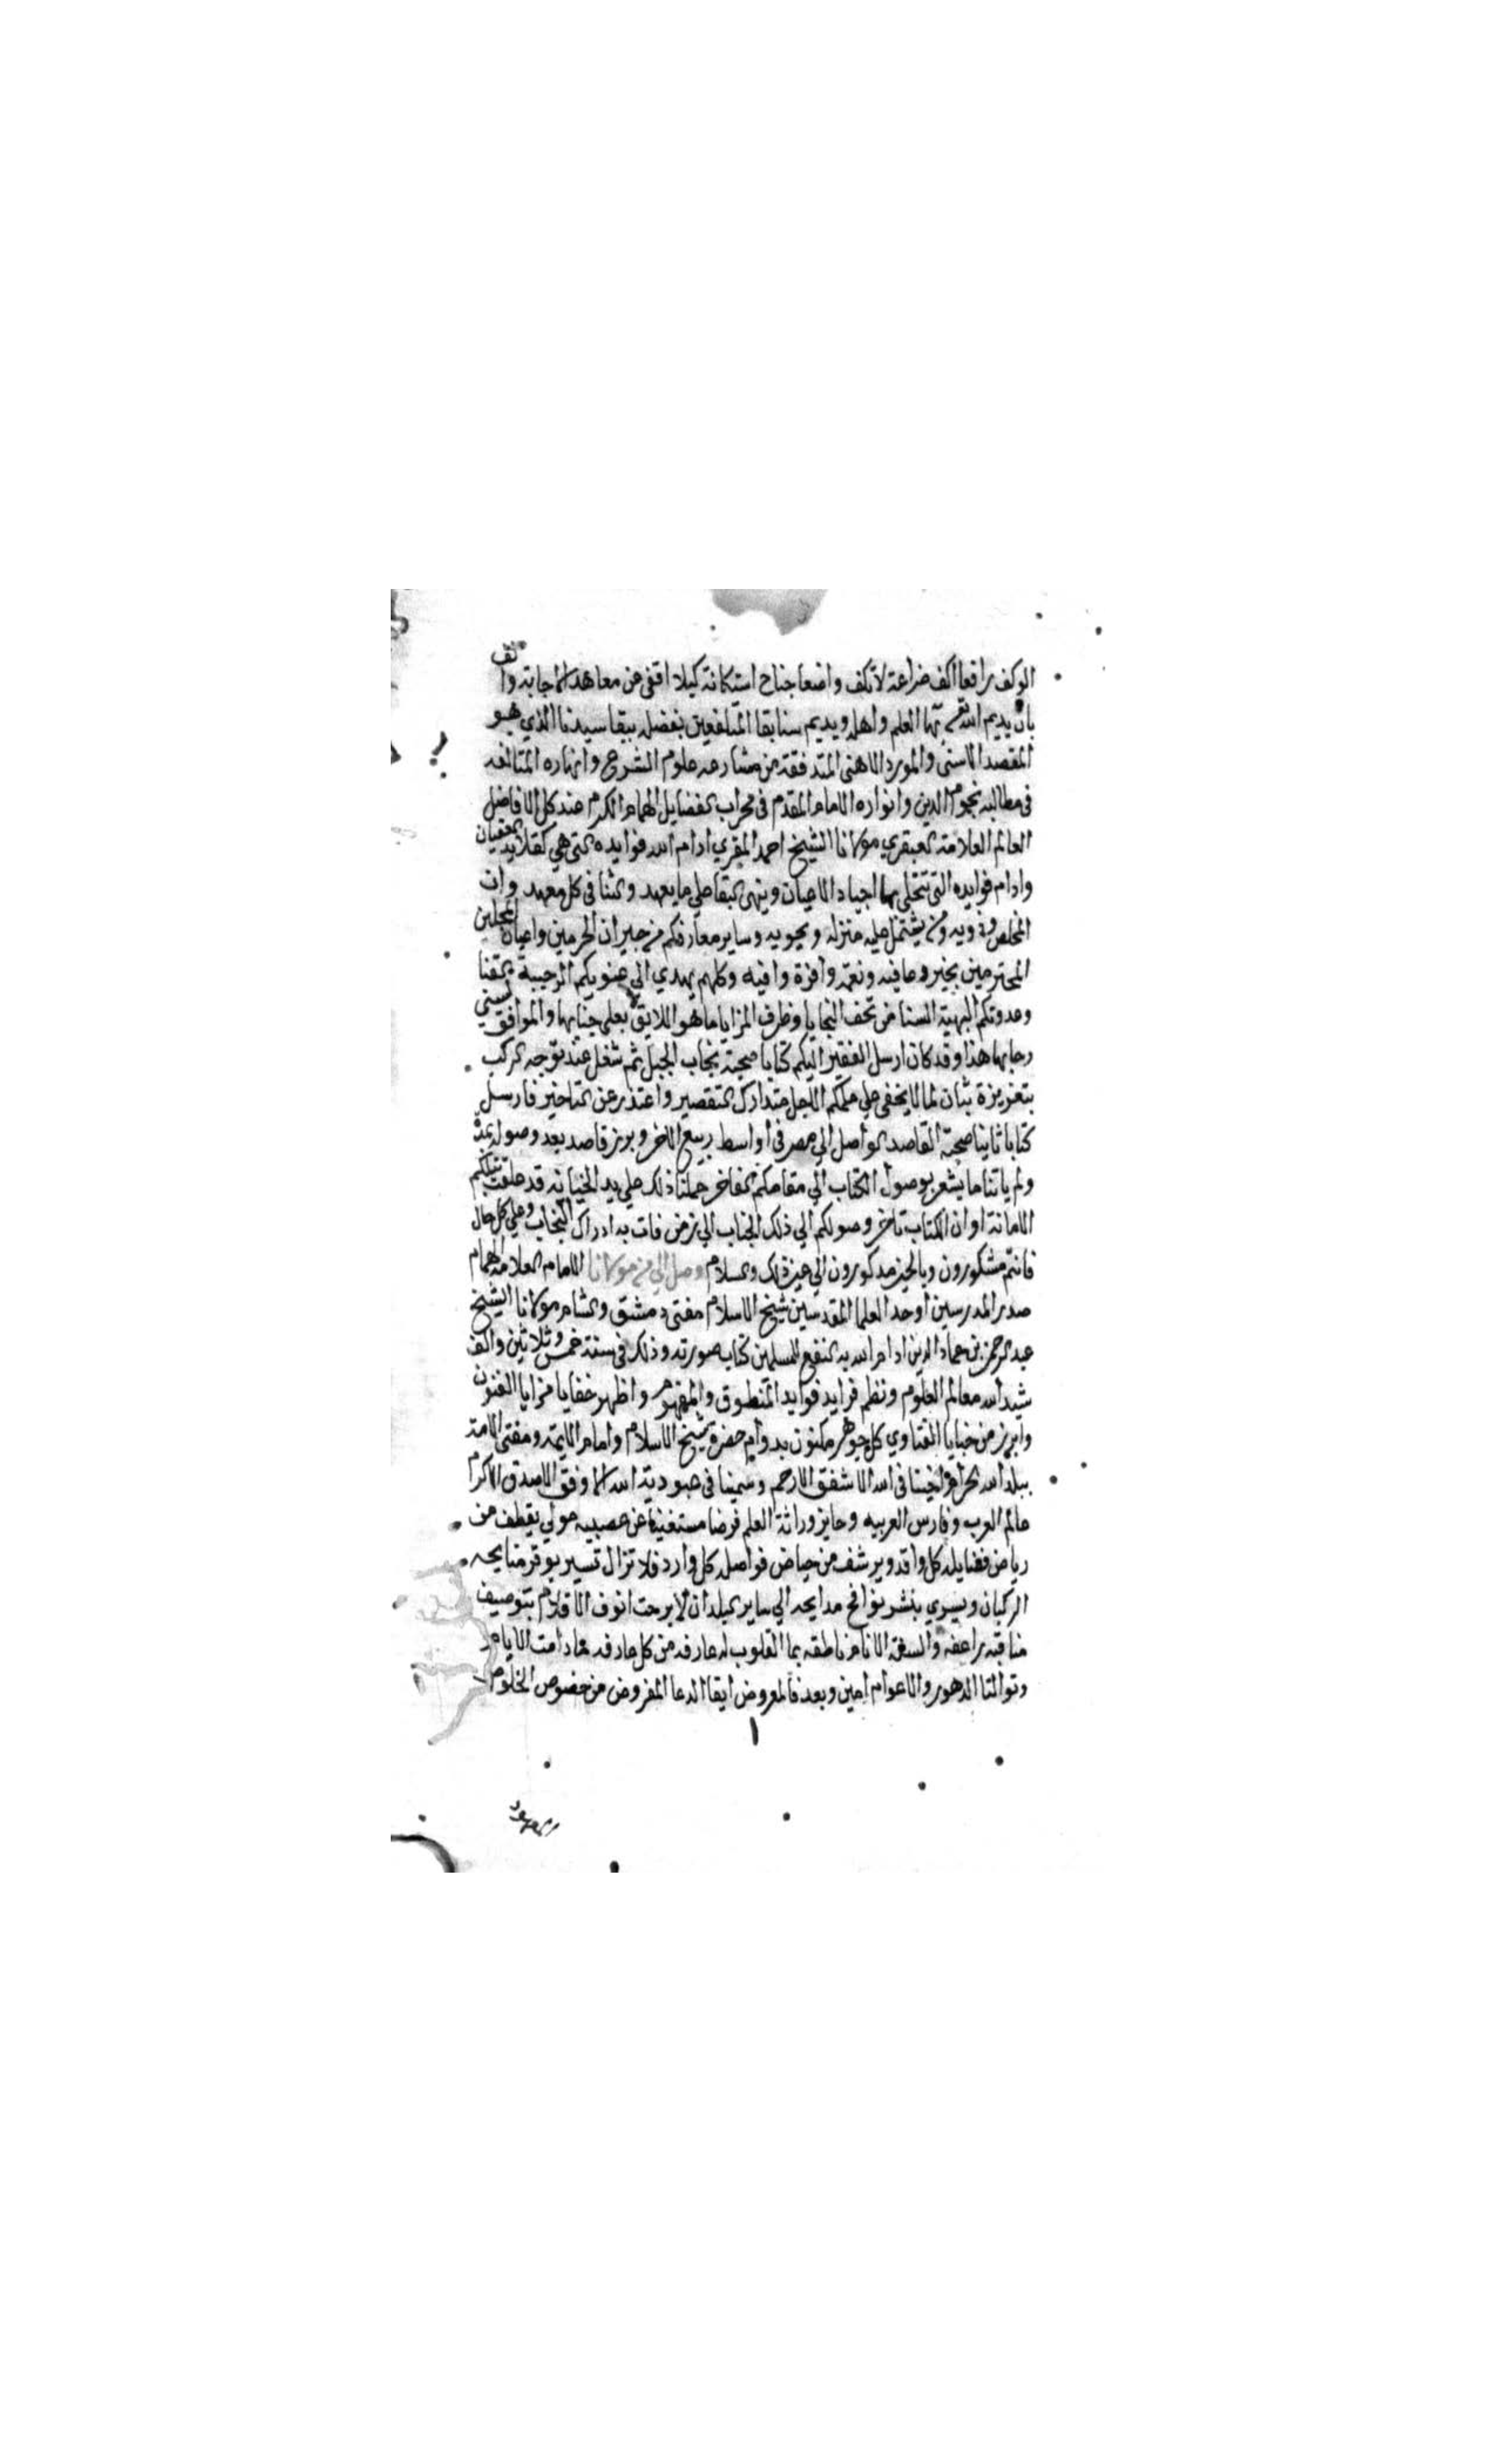 الوكف رافعا اكف ضراعة لا تكف واضعا جناح استكانة كيلا اقفي عن معاهد الاجابة وا نف
بان يديم الله تعالى بها العلم واهله ويديم سنا بقا المتلفعين بفضله ببقا سيدنا الذي هو
المقصد الاسنى والمورد الاهنى المتدفقة من مشارعه علوم الشرع وانهاره المتالقه
في مطالبه نجوم الدين وانواره الامام المقدم في محراب الفضايل الهمام المكرم عند كل الافاضل
العالم العلامة العبقري مولانا الشيخ احمد المقري ادام الله فوايده التي هي كقلايد العقيان
وادام فوايده التي تتحلى بها اجياد الاعيان وينهى البقا على ما يعهد والثنا في كل معهد وان
المخلص وذويه ومن يشتمل عليه منزله ويحويه وساير معارفكم من جيران الحرمين واعيان المحلين
المحترمين بخير وعافيه ونعمه وافرة وافيه وكلهم يهدي الي الرحيبة
وعدوتكم البهية السنا من تحف التحايا وظرف المزايا ما هو اللايق بعلى جنابها والموافق لسني
رحابها هذا وقد كان ارسل الفقير اليكم كتابا صحبة نجاب الجبل ثم شغل عند توجه الركب
بتعزيزة بثان لما لا يخفى على علمكم الاجل متدارك التقصير واعتذر عن التاخير فارسل
كتابا ثانيا صحبة القاصد الواصل الي مصر في اواسط ربيع الاخر وبرز قاصد بعد وصوله بمدة
ولم ياتنا ما يشعر بوصول الكتاب الي مقامكم الفاخر حملنا ذلك على يد الخيانه قد علقت بتلكم
الامانة او ان الكتاب تاخر وصولكم الي ذلك الجناب الي زمن فات به ادراك النجاب وعلي كل حال
فانتم مشكورون وبالخير مذكورون الي غير ذلك والسلام وصل الي من مولانا الامام العلامة الهمام
صدر المدرسين اوحد العلما المقدسين شيخ الاسلام مفتي دمشق والشام مولانا الشيخ
عبد الرحمن بن عماد الدين ادام الله به النفع للمسلمين كتاب صورته وذلك في سنة خمس وثلاثين والف
شيد الله معالم العلوم ونظم فرايد فوايد المنطوق والمفهوم واظهر خفايا مزايا الفنون
وابرز من خبايا الفتاوي كل جوهر مكنون بدوام حضرة شيخ الاسلام وامام الايمة ومفتي الامة
ببلد الله الحرام اخينا في الله الاشفق الارحم وسمينا في عبودية الله الاوفق الاصدق الاكرام
عالم العرب وفارس العربيه وحايز وراثة العلم فرضا مستغنيا عن عصبيه مولى يقطف من
رياض فضايله كل وافد ويرشف من حياض فواضله كل وارد فلا تزال تسير بوقر منايحه
الركبان ويسري بنشر نوافح مدايحه الي ساير البلدان لا برحت انوف الاقلام بتوصيف
مناقبه راعفه والسنة الانام ناطقه بما القلوب له عارفه من كل عارفه ما دامت الايام
وتوالتا الدهور والاعوام امين وبعد فالمعروض ايقا الدعا المفروض من خصوص الخلوص
المعهود